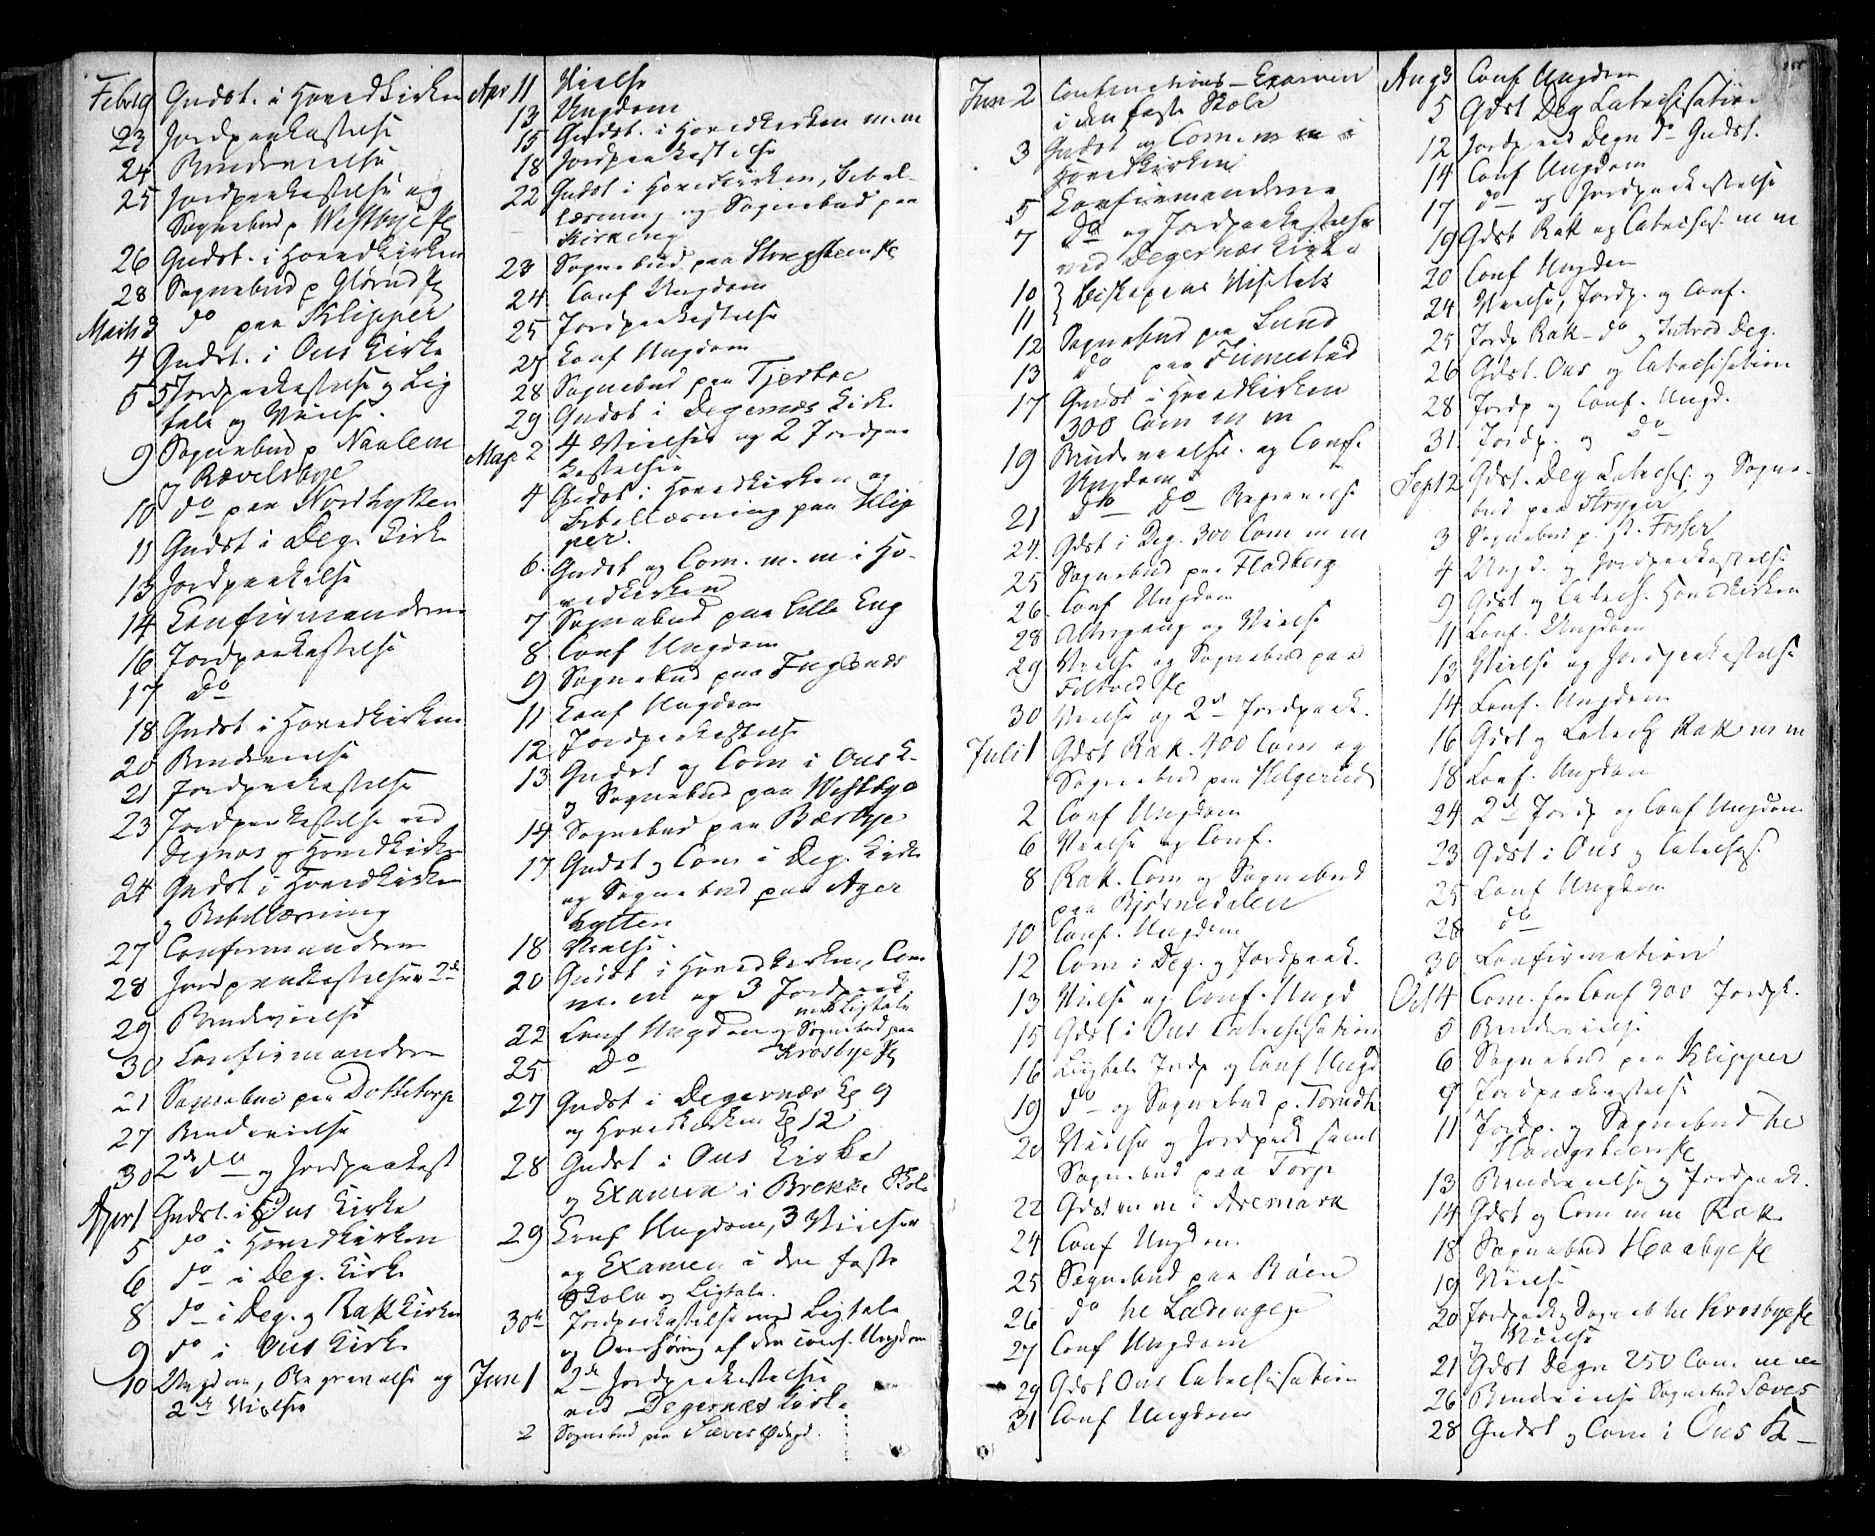 Febr 19 Gudst. i Hovedkirken
23 Jordpaakastelse
24 Brudevielse
25 Jordpaakastelse og
Sognebud p. Westbye
26 Gudst. i Hovedkirken
28 Sognebud p Glørud
do paa Klipper
4 Gudst. i Øus Kirke
5 Jordpaakastelse og Lig
tale og Vielse.
9 Sognebud p. Naalem
og Rævelsbye
10 do paa Nordhytten
11 Gudst i Deg. Kirke
13
14 Confirmanderne
16 Jordpaakastelse
17 do
18 Gudst i Hovedkirken
20 Brudevielse
21 Jordpaakastelse
23 Jordpaakastelse ved
Degnæs og Hovedkirke
24 Gudst i Hovedkirken
og Bibellæsning
27 Confirmanderne
28 Jordpaakastelser 2de
29 Brudevielse
30 Confirmanderne
21 Sognebud paa Dottetorp
27 Brudevielse
30 2de do og Jordpaakast
Apr 1 Gudst. i Øus Kirke
5 do i Hovedkirken
6 do i Deg. Kirke
8 do i Deg. og Rakk Kirke
9 do i Øus Kirke
10 Ungdom, Begravelse og
2de Vielser
Apr 11 Vielse
13 Ungdom
15 Gudst. i Hovedkirken m.m
18 Jordpaakastelse
22 Gudst i Hovedkirken, Bibel-
læsning og Sognebud paa
Kirkeng
23 Sognebud paa
24 Conf Ungdom
25 Jordpaakastelse
27 Conf Ungdom
28 Sognebud paa Tjerbøe
29 Gudst i Degernæs Kirke
Maj 2 4 Vielser og 2 Jordpaa
kastelser
4 Gudst i Hovedkirken og
Bibellæsning paa Klip
per.
6. Gudst og Com. m. m i Ho-
vedkirken
7 Sognebud paa Lille Eng
8 Conf Ungdom
9 Sognebud paa Fuglenæs
11 Conf Ungdom
12 Jordpaakastelse
13 Gudst og Com i Øus K.
og Sognebud paa Westbye
14 Sognebud paa Bærbye
17 Gudst og Com i Deg. Kirke
og Sognebud paa Ager
hytten
18 Vielse.
20 Gudst i Hovedkirken, Com
m. m og 3 Jordpaak.
med Ligtale
22 Conf Ungdom og Sognebud paa
Krosbye
25 do
27 Gudst i Degernæs Kl 9
og Hovedkirken Kl 12
28 Gudst i Øus Kirke
og Examen i Brekke Skole
29 Conf Ungdom, 3 Vielser
og Examen i den faste
Skole og Ligtale.
30 Jordpaakastelse med Ligtale
og Overhøring af den conf. Ungdom
Juni 1 2de Jordpaakastelse
ved Degernæs Kirke
2 Sognebud paa
Jun 2 Confirmations-Examen
i den faste Skole
3 Gudst og Com. m m i
Hovedkirken
5 Confirmanderne
7 do og Jordpaakastelse
ved Degernæs Kirke
10
11 } Biskopens Visitats
12 Sognebud paa Lund
13 do paa
17 Gudst i Hovedkirken
300 Com m m
19 Brudevielse. og Conf.
Ungdom
21 do do Begravelse
24. Gdst i Deg. 300 Com m m
25 Sognebud paa Fladberg
26. Conf Ungdom
28 Altergang og Vielse
29 Vielse og Sognebud paa
30 Vielse og 2de Jordpaak.
Juli 1 Gdst Rak. 400 Com og
Sognebud paa Helgerud
2 Conf Ungdom
6 Vielse og Conf.
8 Rakk. Com og Sognebud
paa Bjørnedalen
10 Conf. Ungdom
12 Com i Deg. og Jordpaak.
13 Vielse og Conf. Ungd
15 Gdst i Øus Catechisation
16 Ligtale Jordp og Conf Ungd
19 do og Sognebud p.
20 Vielse og Jordpaak samt
Sognebud paa Torp
22 Gdst m m i Aremark
24 Conf Ungdom.
25 Sognebud paa Røen
26 do
27 Conf Ungdom
29 Gdst Øus Catechisation
31 Conf Ungdom
Aug 3 Conf Ungdom
5 Gdst Deg Catechisation
12 Jordp ved Degn do Gudst.
14 Conf Ungdom
17 do og Jordpaakastelse
19 Gdst Rakk og Catechis. m m
20 Conf Ungdom
24 Vielse, Jordp. og Conf.
25 Jordp Rakk. do og Introd Deg.
26 Gdst. Øus og Catechisation
28 Jordp og Conf. Ungd.
31 Jordp. og do
Sept 2 Gdst. Deg Catechis og Sogne-
bud paa
3 Sognebud p. Fosser
4 Ungd. og Jordpaakastelse
9 Gdst og Catech. Hovedkirken
11 Conf. Ungdom
13 Vielse og Jordpaakastelse
14 Conf. Ungdom
16 Gdst og Catech Rakk m m
18 Conf. Ungdom
24 2de Jordp og Conf Ungdom
23 Gdst i Øus og Catechis.
25 Conf Ungdom
28 do
30 Confirmation
Oct 4 Com. for Conf 300 Jordpk.
5 Brudevielse
6 Sognebud paa Klipper
9 Jordpaakastelse
11 Jordp. og Sognebud
13 Brudevielse og Jordpaak.
14 Gdst og Com m m Rakk
18 Sognebud Haabye
19 Vielse
20 Jordpaak og Sogneb Krosbye
og Vielse
21 Gdst Degn 250 Com m m
26 Brudevielse Sognebud
28 Gudst og Com i Øus K